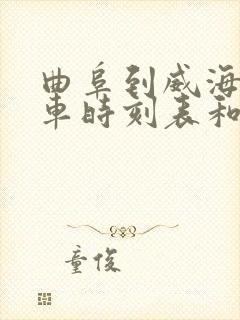 曲阜到威海
车时刻表和
童俊